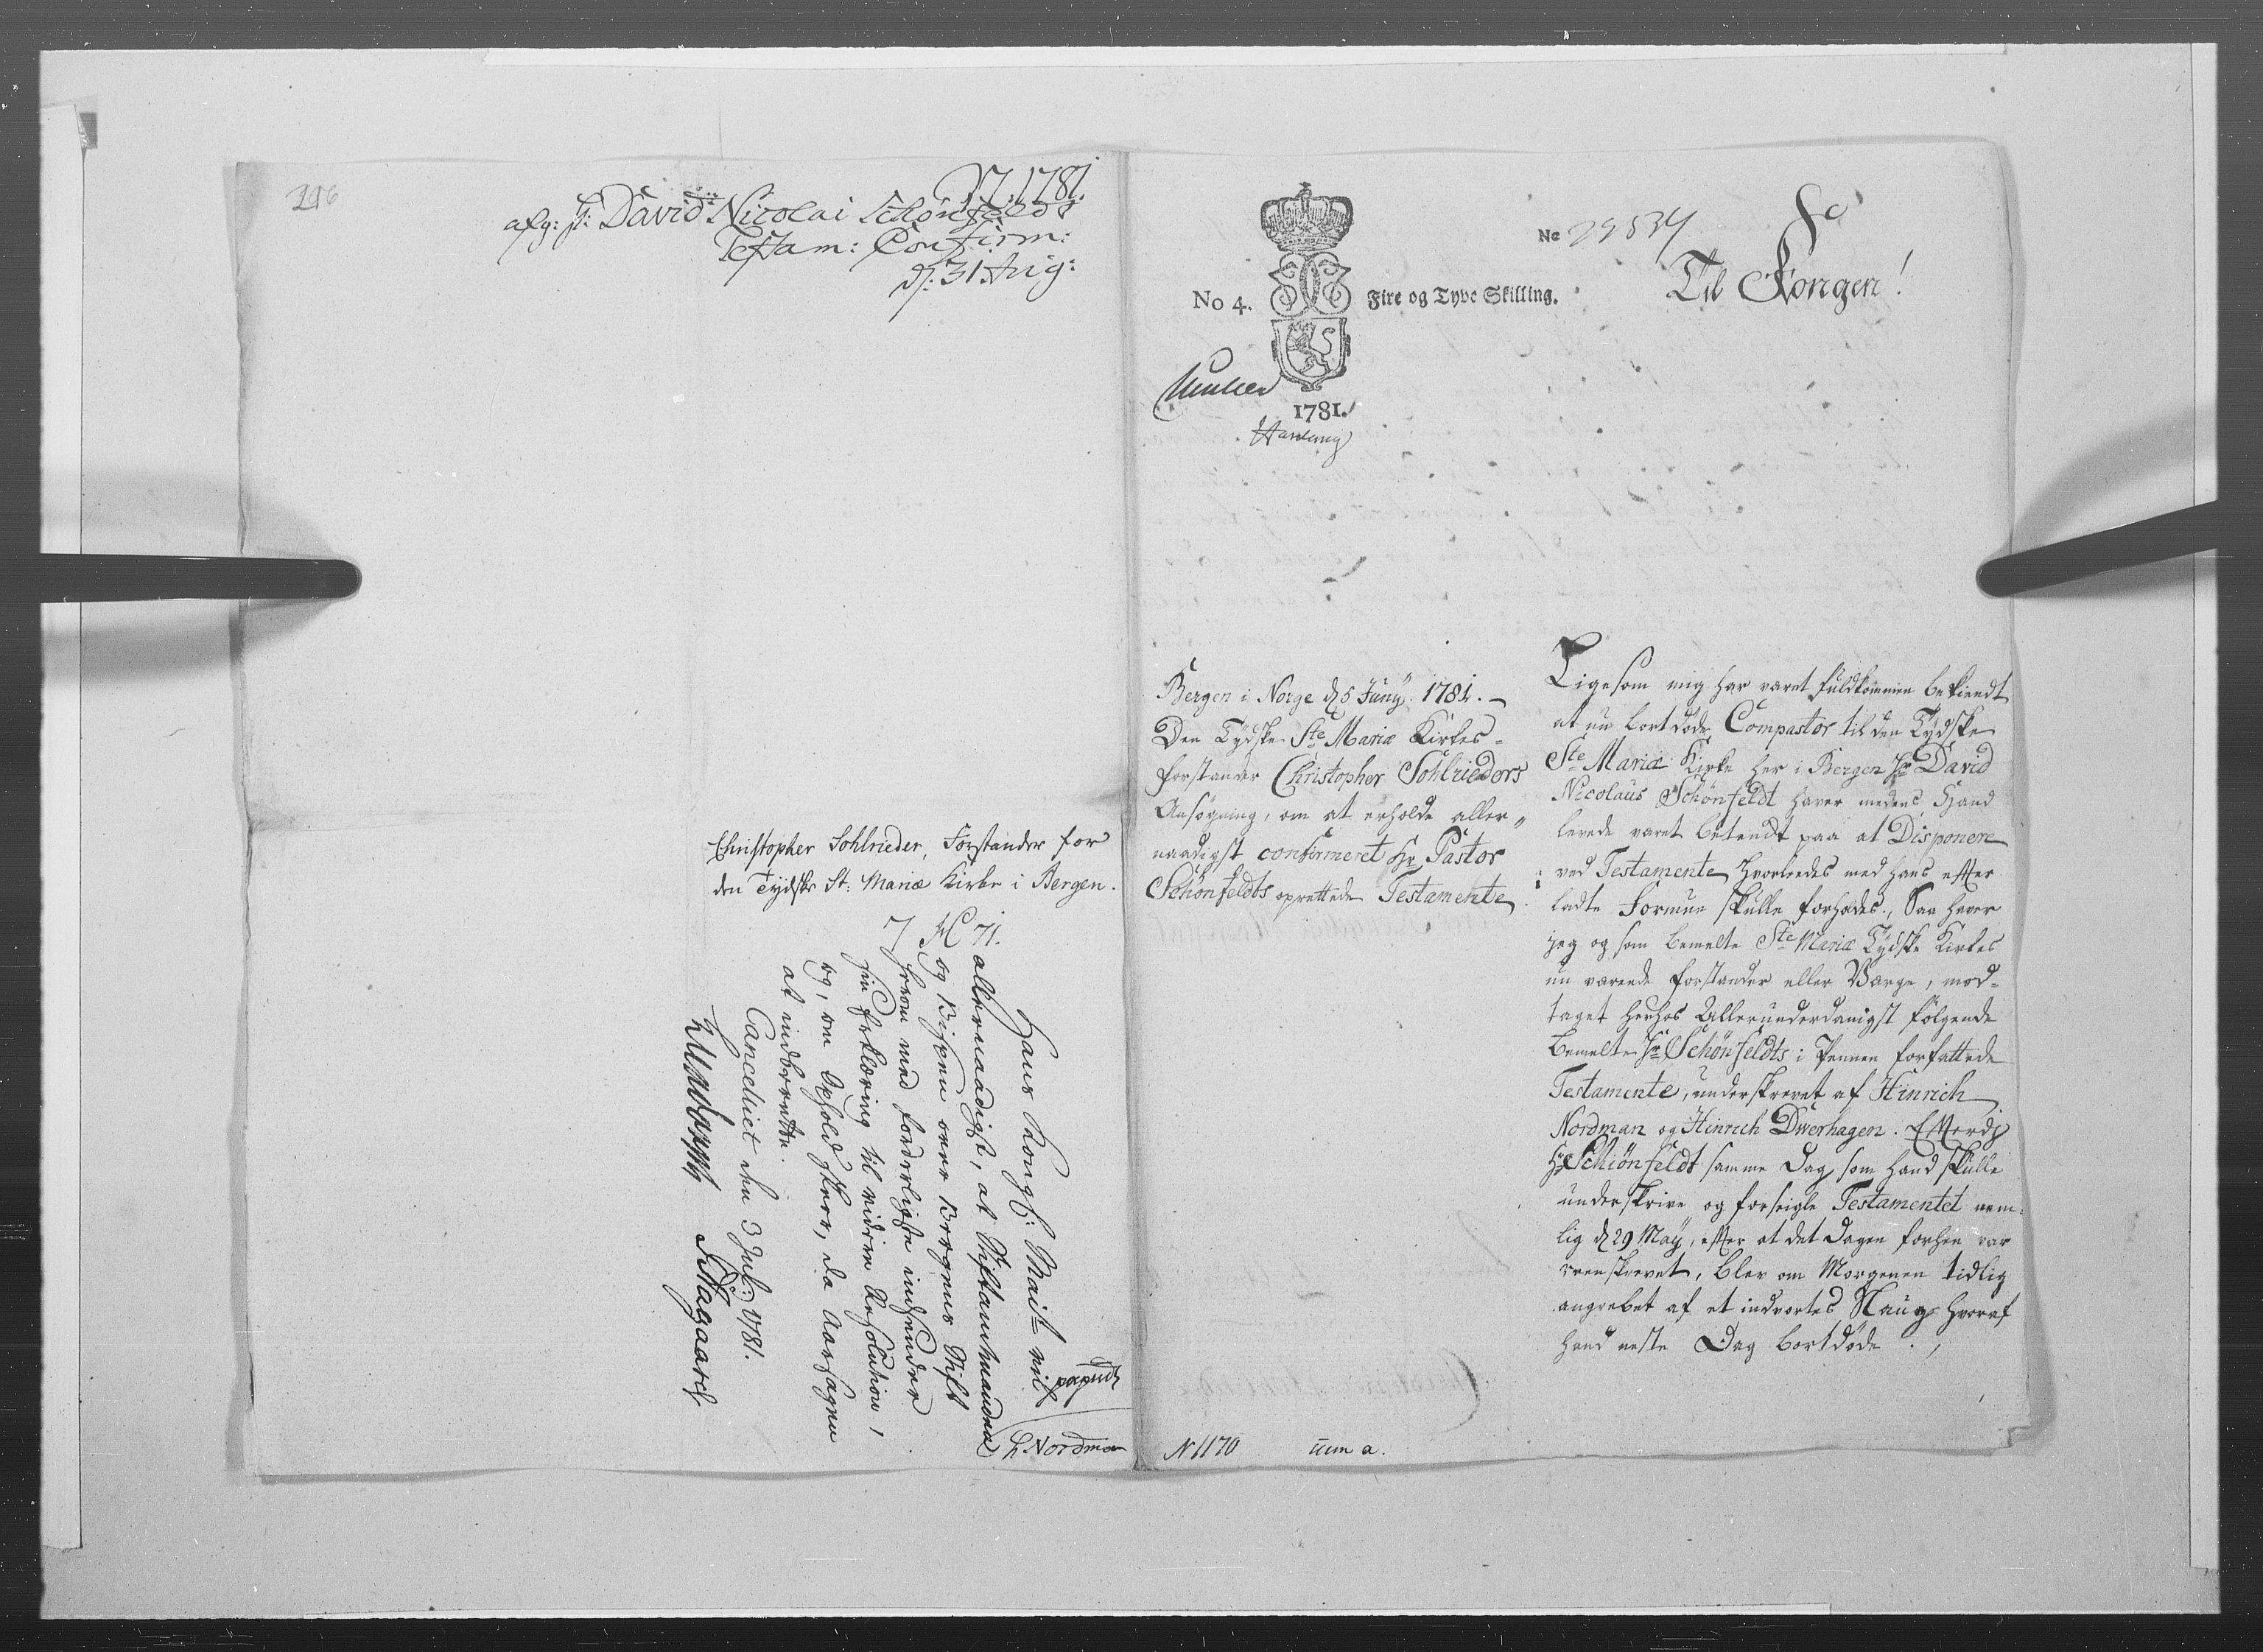 116
17. 1781.
afg: H: David Nicolai Schønfeldts
Testam: Confirm:
d: 31 Aug:
Christopher Sohlrieder, Forstander for
den Tydske St: Mariæ Kirke i Bergen.
7 71.
Hans Kongl: Maist. vil
allernaadigst, at Stiftamtmanden
og Bispen over Bergens Stift
herom med forderligste indsender
sin Erklæring til videre Resolution,
og, om Ophold skeer, da Aarsagen
at indberette.
Cancelliet den 3 Juli 1781.
Aagaard
H Nordman
No 4.
Fire og Tyve Skilling.
1781.
No 29534
Til Kongen!
Bergen i Norge d 5 Juny. 1781. –
Den Tydske Ste Mariæ Kirkes-
forstander Christopher Sohlrieders
Ansøgning, om at erholde aller-
naadigst confirmeret Hr Pastor
Schönfeldts oprettede Testamente.
Ligesom mig har været fuldkommen bekiendt
at nu bortdøde Compastor til den Tydske
Ste Mariæ Kirke her i Bergen Hr David
Nicolaus Schönfeldt haver medens Hand
levede været betændt paa at Disponere
ved Testamente hvorledes med hans efter
ladte Formue skulle forholdes, Saa haver
jeg og som bemelte Ste Mariæ Tydske Kirkes
nu værende forstander eller Værge, mod-
taget herhos Allerunderdanigst følgende
bemelte Hr Schönfeldts i Pennen forfattede
Testamente, underskrevet af Hinrich
Nordman og Hinrich Dwerhagen. Efterdj
Hr Schiönfeldt samme Dag som Hand skulle
underskrive og forseigle Testamentet nem-
lig d 29 May, efter at det Dagen forhen var
reenskrevet, blev om Morgenen tidlig
angrebet af et indvortes Slaug hvoraf
hand neste Dag bortdøde.
N 1170 cum a.